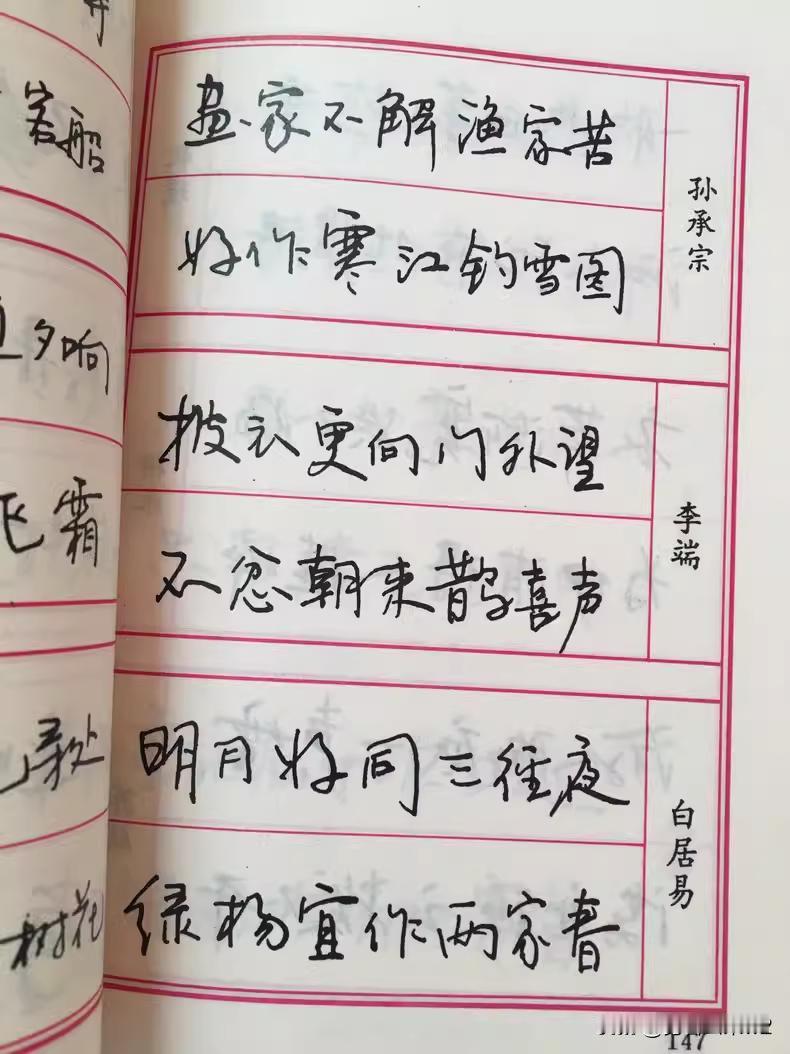 客船
夕响
飞霜
处
树花
画家不解渔家苦
好作寒江钓雪图
孙承宗
披衣更向门外望
不忿朝来鹊喜声
李端
明月好同三径夜
绿杨宜作两家春
白居易
147